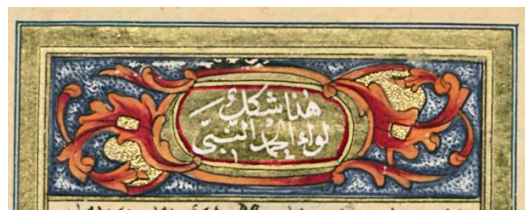 هذا شكل
لواء الحمد النبي